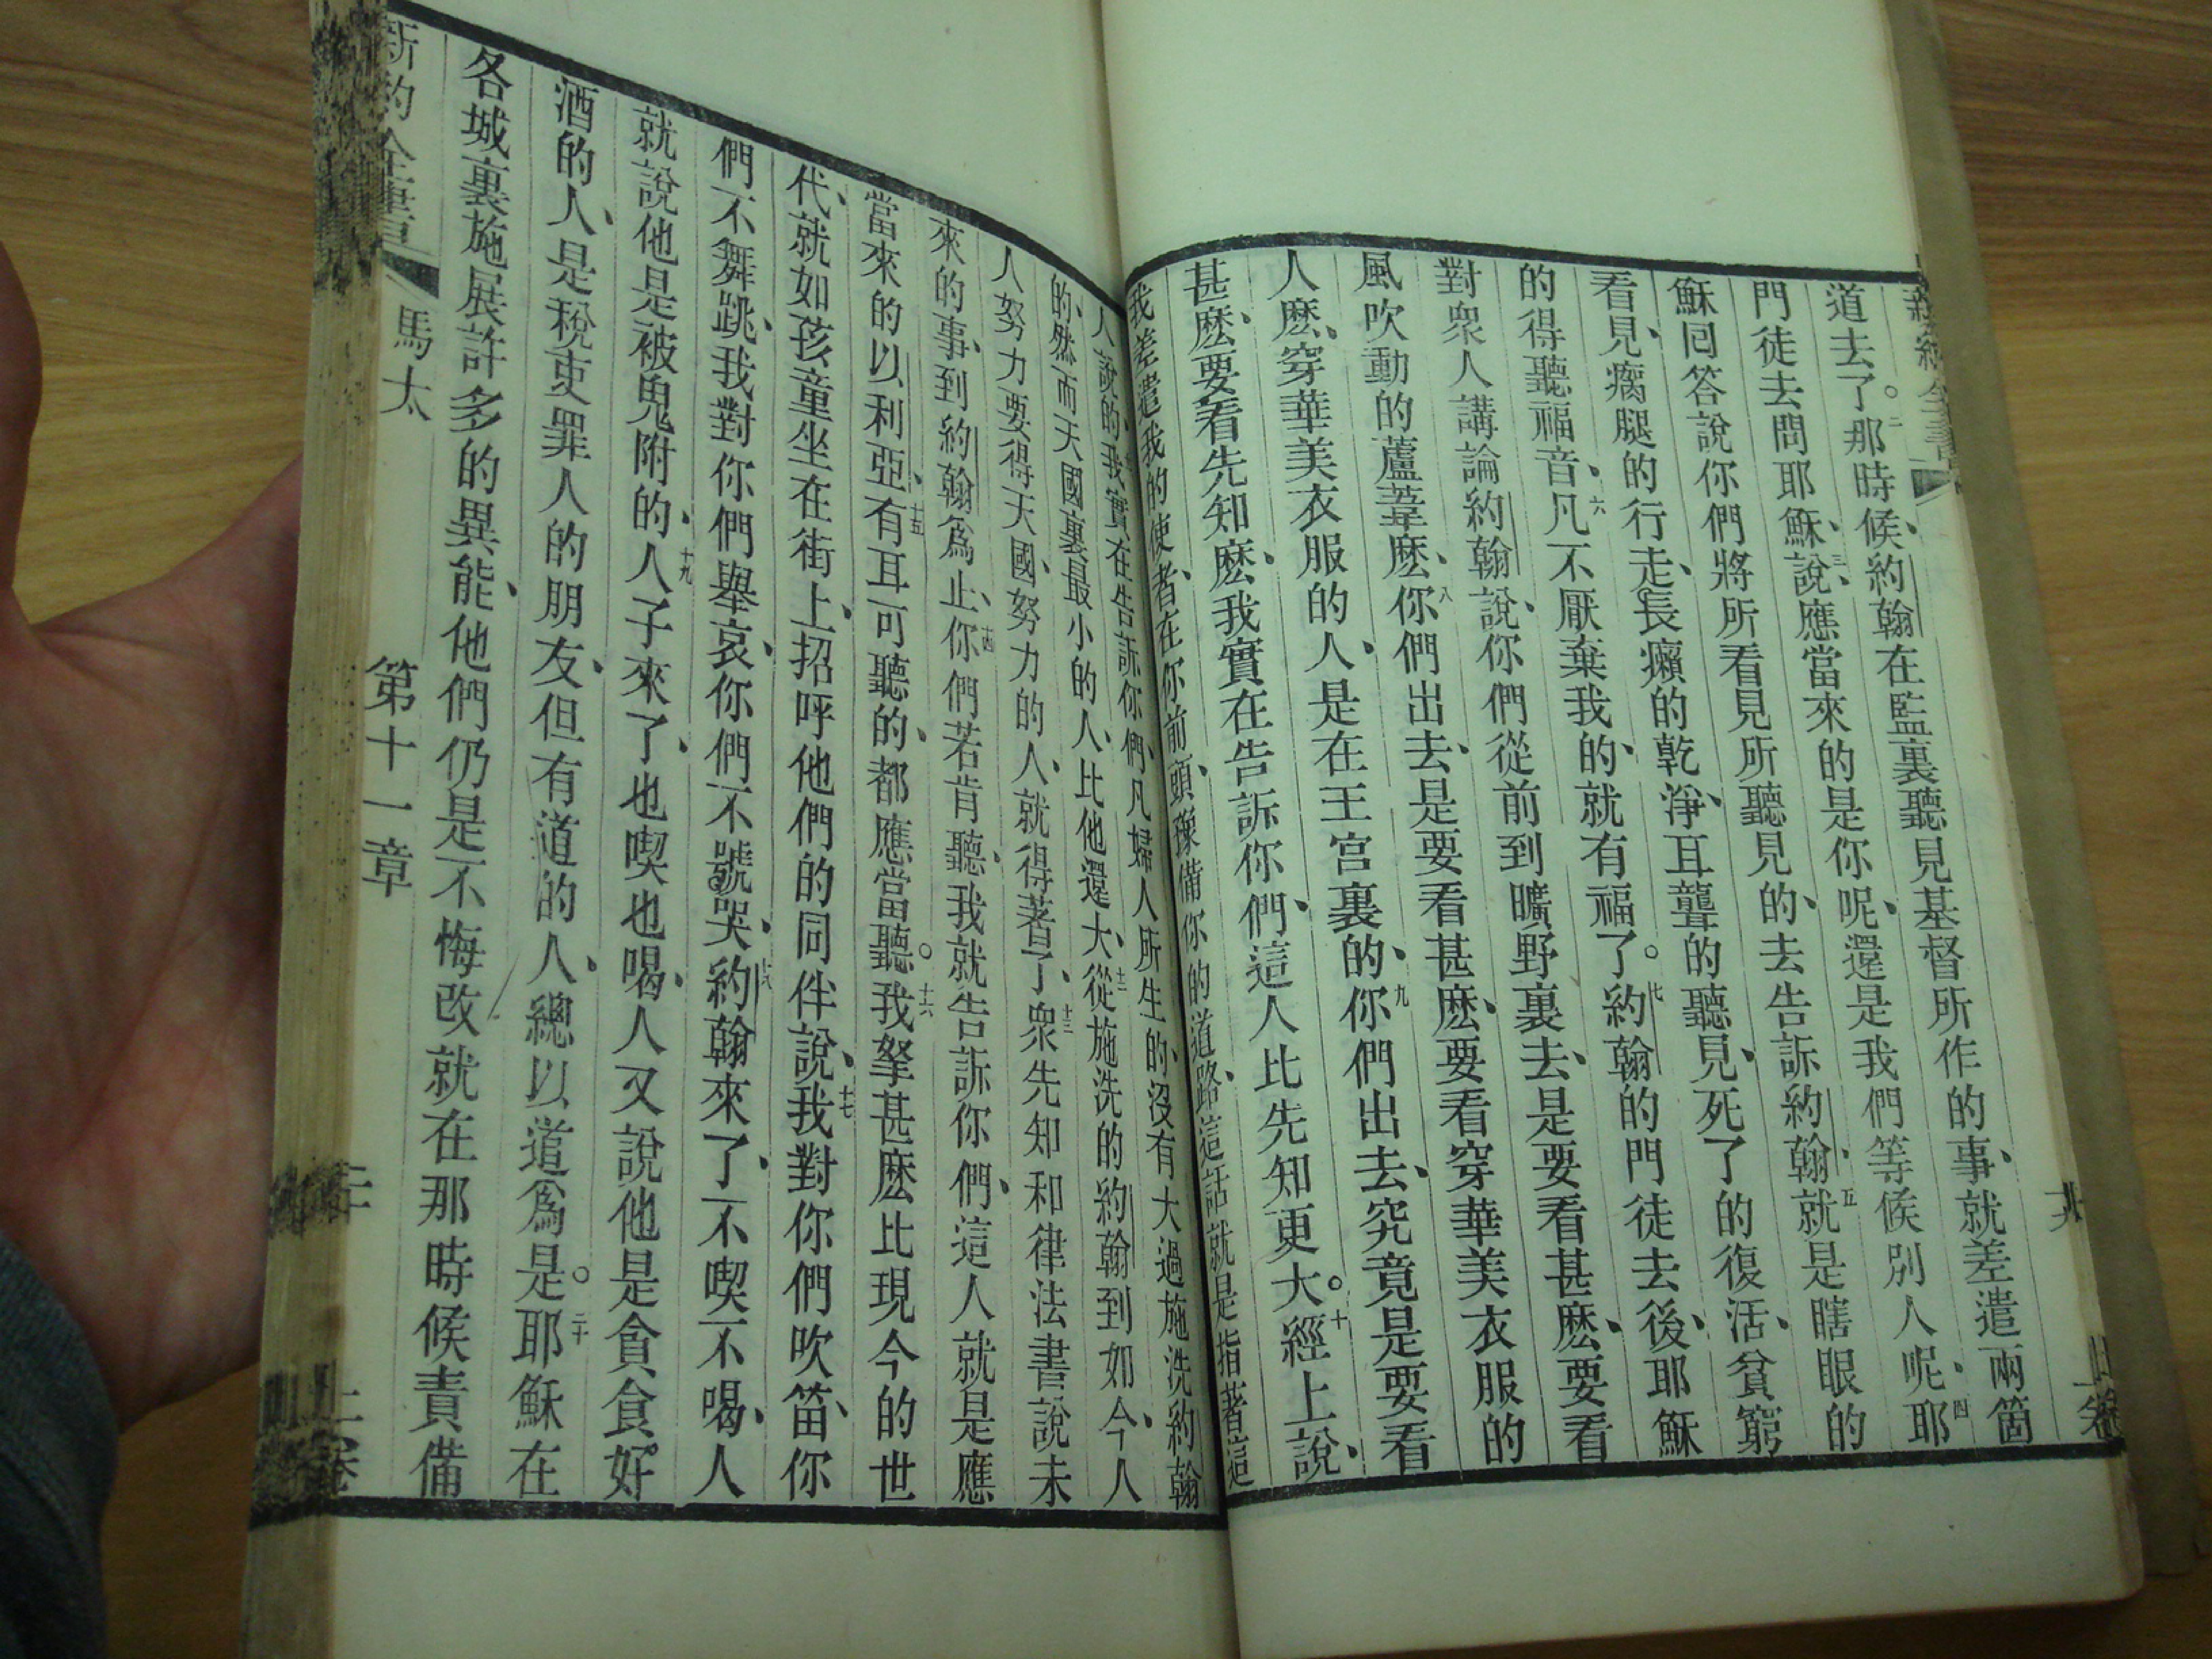 新約全書
道去了。二那時候、約翰在監裏聽見基督所作的事、就差遣兩箇
門徒去問耶穌、三說、應當來的是你呢、還是我們等候別人呢、四耶
穌囘答說你們將所看見所聽見的、去告訴約翰、五就是瞎眼的
看見、瘸腿的行走、長癩的乾淨、耳聾的聽見、死了的復活、貧窮
的得聽福音、六凡不厭棄我的、就有福了。七約翰的門徒去後、耶穌
對衆人講論約翰說、你們從前到曠野裏去、是要看甚麽、要看
風吹動的蘆葦麽、八你們出去、是要看甚麽、要看穿華美衣服的
人麽、穿華美衣服的人、是在王宮裏的、九你們出去、究竟是要看
甚麽、要看先知麽、我實在告訴你們、這人比先知更大。十經上說、
我差遣我的使者、在你前頭、豫備你的道路、這話就是指著這
人說的、我實在告訴你們、凡婦人所生的、沒有大過施洗約翰
的、然而天國裏最小的人、比他還大、十二從施洗的約翰到如今、人
人努力要得天國、努力的人、就得著了、十三衆先知和律法書說未
來的事、到約翰爲止、十四你們若肯聽、我就告訴你們、這人就是應
當來的以利亞、十五有耳可聽的、都應當聽。十六我拏甚麽比現今的世
代、就如孩童坐在街上、招呼他們的同伴說、十七我對你們吹笛、你
們不舞跳、我對你們舉哀、你們不號哭、十八約翰來了、不喫不喝、人
就說他是被鬼附的、十九人子來了、也喫也喝、人又說他是貪食好
酒的人、是稅吏罪人的朋友、但有道的人、總以道爲是。二十耶穌在
各城裏施展許多的異能、他們仍是不悔改、就在那時候責備
新約全書 馬太 第十一章 上卷